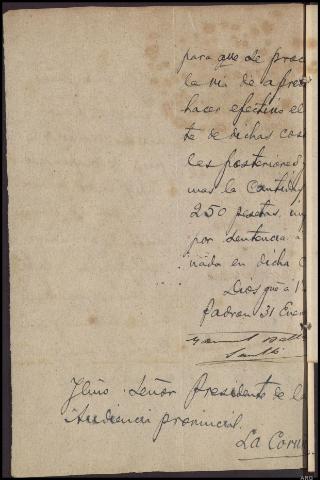 para que se proc
la via de apre
hacer efectivo el
te de dichas cos
les posteriores
mas la cantid
250 pesetas, im
por sentencia
nada en dicha
Dios gue á V
Padron 31 Ene
Ylmo. Señor Presidente de la
Audiencia provincial.
La Coru